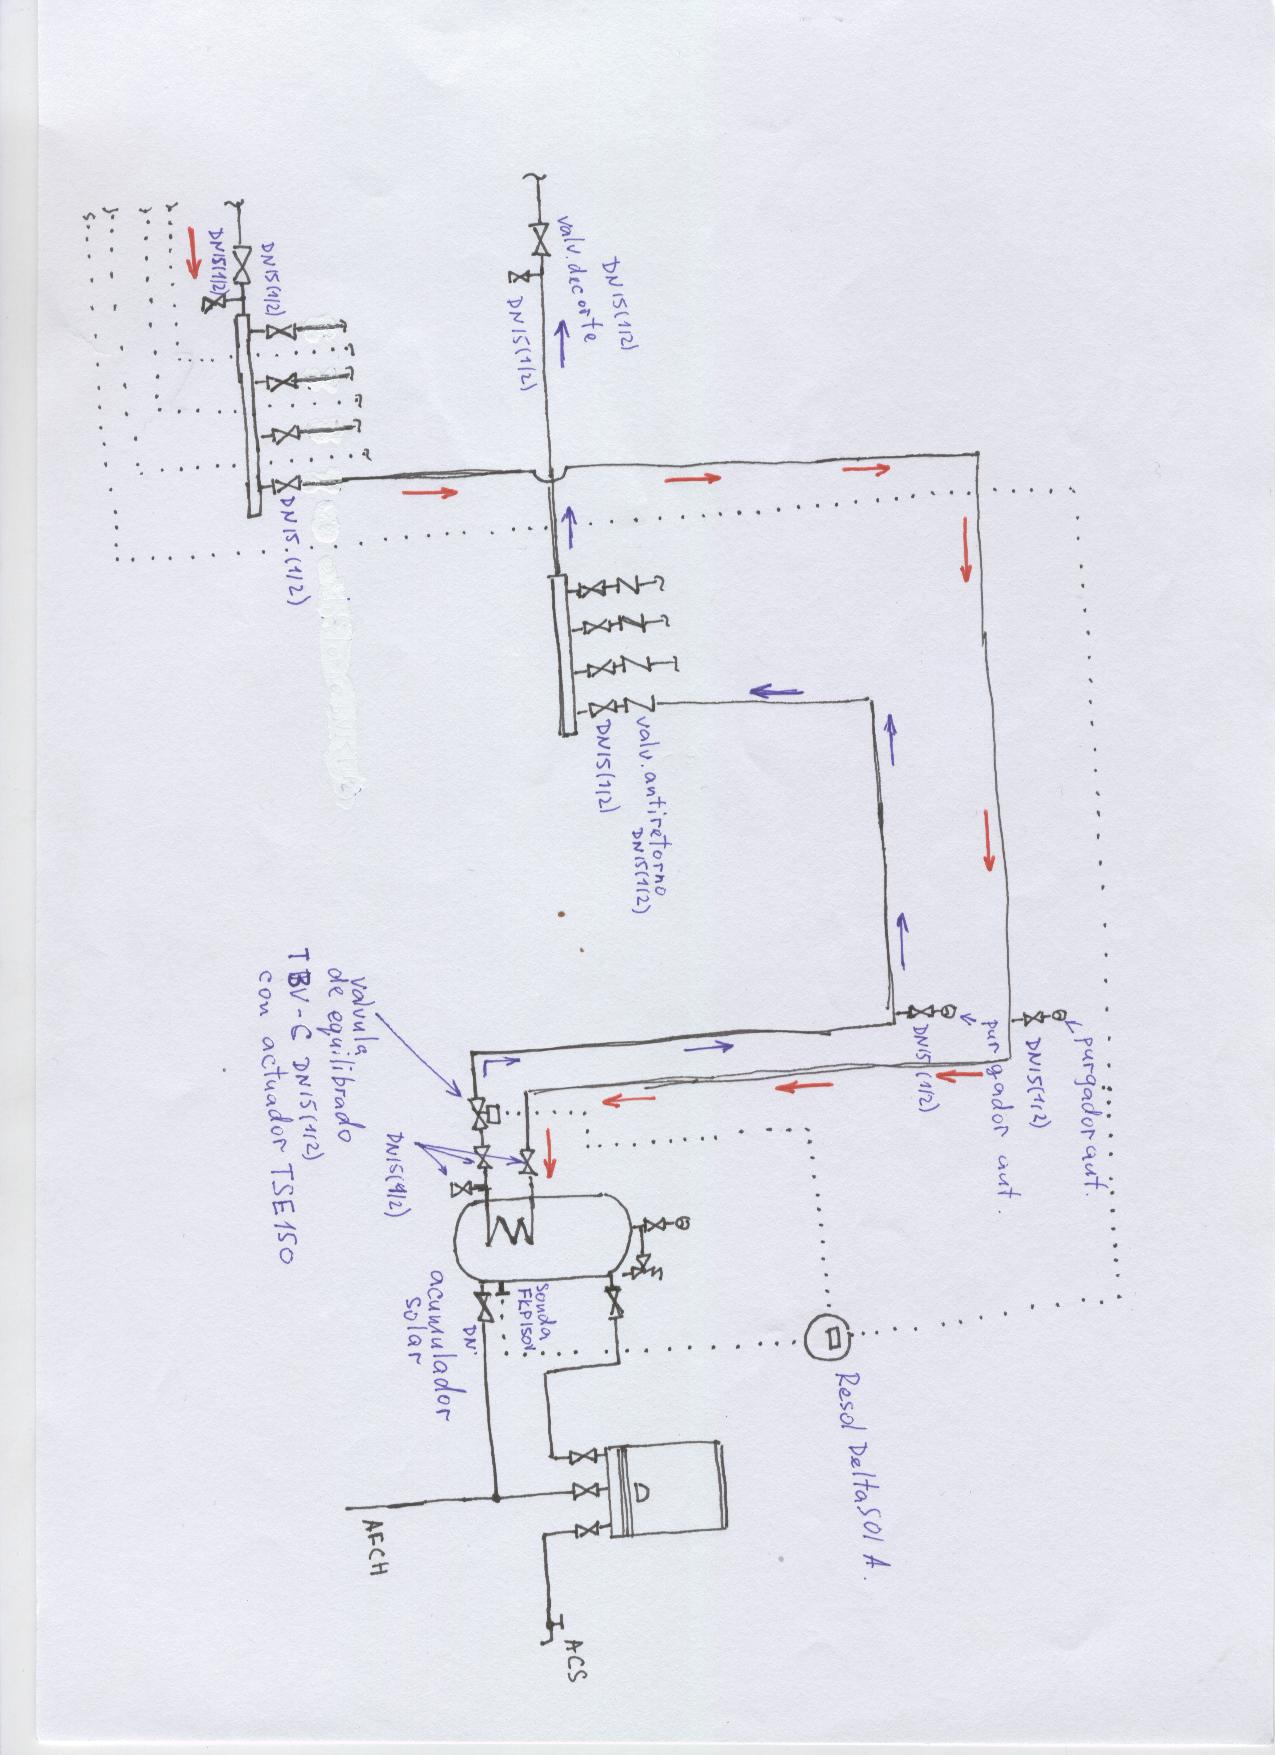 DN15(1/2)
DN15(1/2)
DN15.(1/2)
DN15(1/2)
valv.decorte
DN15(1/2)
DN15(1/2)
valv.antiretorno
DN15(1/2)
purgador aut.
DN15(1/2)
purgador aut.
DN15(1/2)
valvula
de equilibrado
TBV-C DN15(1/2)
con actuador TSE150
DN15(1/2)
sonda
FKP150r
DN.
acumulador
solar
Resol DeltaSol A.
AFCH
ACS